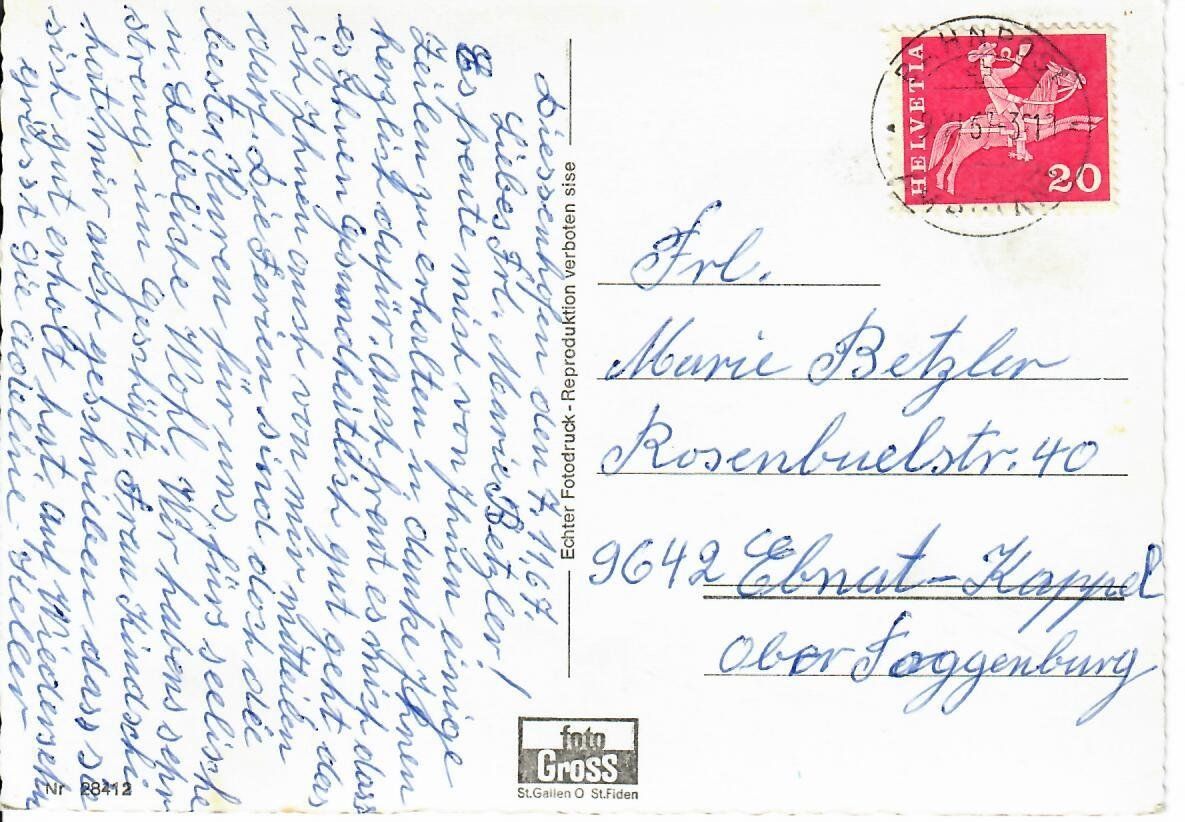 Diessenhofen den 7,11,67.
Liebes Frl. Marie Betzler!
Es freute mich von Ihnen einige
Zeilen zu erhalten u danke Ihnen
herzlich dafür. Auch freut es mich dass
es Ihnen Gesundheitlich gut geht das
ich Ihnen auch von mir mitteilen
darf. Die Ferien sind doch die
besten Kuren für uns fürs seelische
u. Leibliche Wohl. Wir habens sehr
streng im Geschäft. Frau Kindschi
hat mir auch geschrieben dass sie
sich gut erholt hat auf Wiedersehn
grüsst Sie Heller
Echter Fotodruck - Reproduktion verboten sise
Nr 28412
foto
Gross
St.Gallen O St.Fiden
HELVETIA
20
Frl.
Marie Betzler
Rosenbuelstr. 40
9642 Ebnat-Kappel
Ober Toggenburg